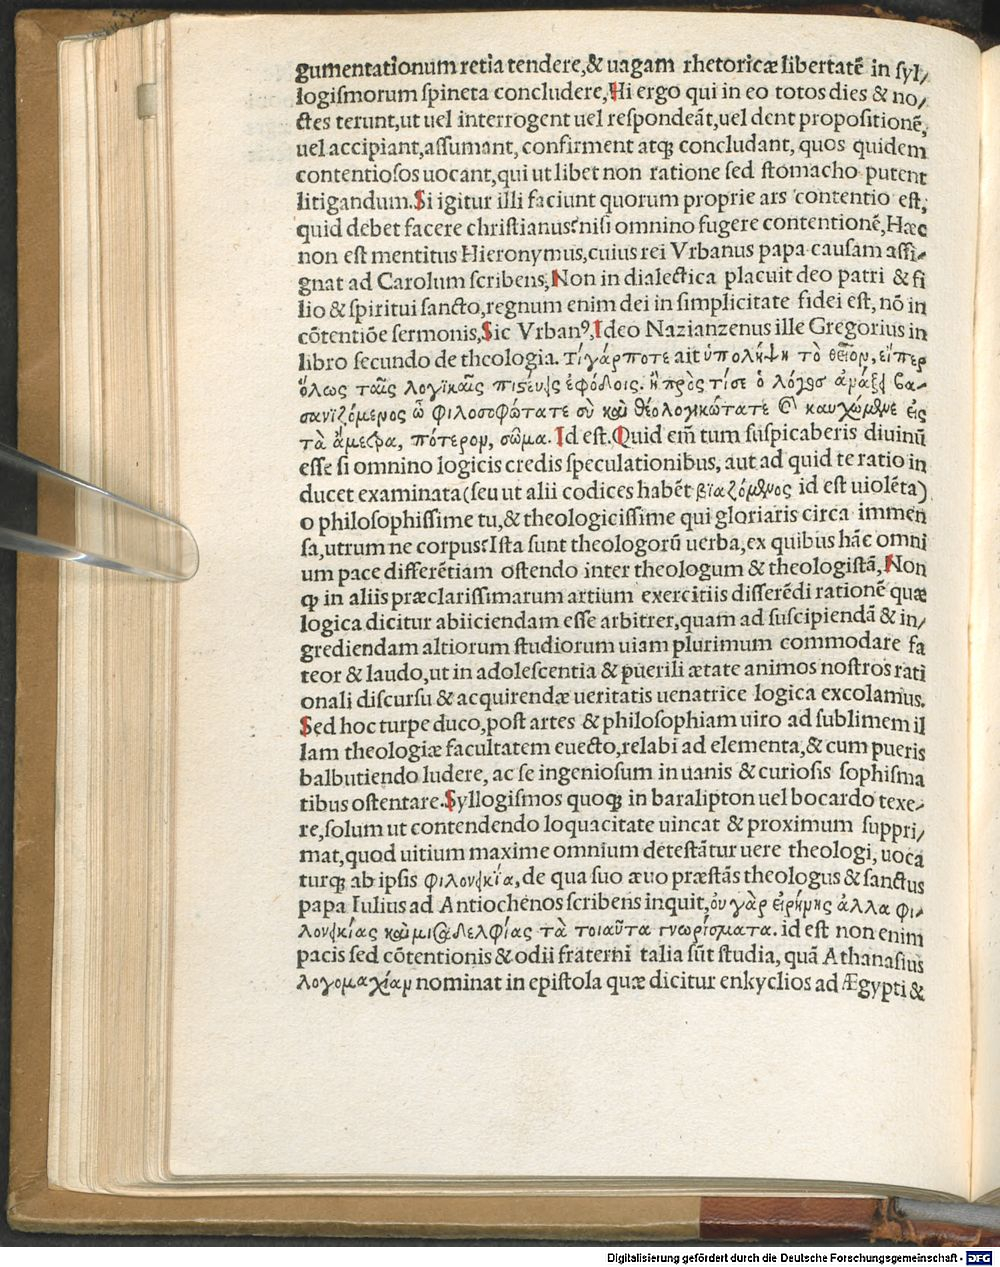 gumentationum retia tendere,& uagam rhetoricæ libertatē in syl/
logismorum spineta concludere,Hi ergo qui in eo totos dies & no/
ctes terunt,ut uel interrogent uel respondeāt,uel dent propositionē,
uel accipiant,assumant, confirment atqꝫ concludant, quos quidem
contentiosos uocant,qui ut libet non ratione sed stomacho putent
litigandum.Si igitur illi faciunt quorum proprie ars contentio est,
quid debet facere christianus?nisi omnino fugere contentionē,Hæc
non est mentitus Hieronymus,cuius rei Vrbanus papa causam assi-
gnat ad Carolum scribens,Non in dialectica placuit deo patri & fi
lio & spiritui sancto,regnum enim dei in simplicitate fidei est, nō in
cōtentiōe sermonis,Sic Vrbanꝰ,Ideo Nazianzenus ille Gregorius in
libro secundo de theologia. τί γάρ ποτε ait ὑπολήψη τὸ θεῖον, εἴπερ
ὅλως ταῖς λογικαῖς πιστεύεις ἐφόδοις. ἢ πρὸς τί σε ὁ λόγος ἀνάξει βα-
σανιζόμενος ὦ φιλοσοφώτατε σὺ καὶ θεολογικώτατε καὶ καυχώμενε εἰς
τὰ ἄμετρα, πότερον, σῶμα. Id est.Quid em̄ tum suspicaberis diuinū
esse si omnino logicis credis speculationibus, aut ad quid te ratio in
ducet examinata(seu ut alii codices habēt βιαζόμενος id est uiolēta)
o philosophissime tu,& theologicissime qui gloriaris circa immen
sa,utrum ne corpus?Ista sunt theologorū uerba,ex quibus hāc omni
um pace differētiam ostendo inter theologum & theologistā,Non
ꝙ in aliis præclarissimarum artium exercitiis disserēdi rationē quæ
logica dicitur abiiciendam esse arbitrer,quam ad suscipiendā & in/
grediendam altiorum studiorum uiam plurimum commodare fa
teor & laudo,ut in adolescentia & puerili ætate animos nostros rati
onali discursu & acquirendæ ueritatis uenatrice logica excolamus.
Sed hoc turpe duco,post artes & philosophiam uiro ad sublimem il
lam theologiæ facultatem euecto,relabi ad elementa,& cum pueris
balbutiendo ludere, ac se ingeniosum in uanis & curiosis sophisma
tibus ostentare.Syllogismos quoqꝫ in baralipton uel bocardo texe-
re,solum ut contendendo loquacitate uincat & proximum suppri/
mat,quod uitium maxime omnium detestātur uere theologi, uoca
turqꝫ ab ipsis φιλονεικία, de qua suo æuo præstās theologus & sanctus
papa Iulius ad Antiochenos scribens inquit,οὐ γὰρ εἰρήνης ἀλλα φι-
λονεικίας καὶ μισαδελφίας τὰ τοιαῦτα γνωρίσματα. id est non enim
pacis sed cōtentionis & odii fraterni talia sūt studia, quā Athanasius
λογομαχίαν nominat in epistola quæ dicitur enkyclios ad Ægypti &
Digitalisierung gefördert durch die Deutsche Forschungsgemeinschaft - DFG